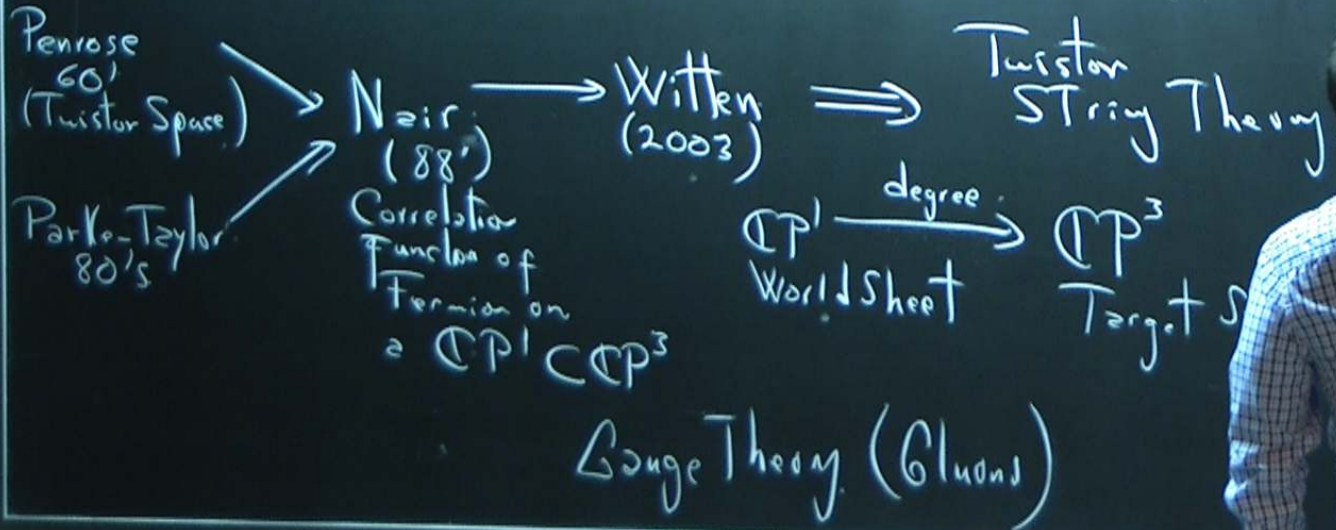 Penrose
60'
(Twistor Space)
Parke-Taylor
80's
Nair
(88')
Correlation
Function of
Fermion on
a ℂP¹ ⊂ ℂP³
Witten
(2003)
Twistor
STring Theory
degree
ℂP¹ → ℂP³
WorldSheet
Target S
Gauge Theory (Gluons)